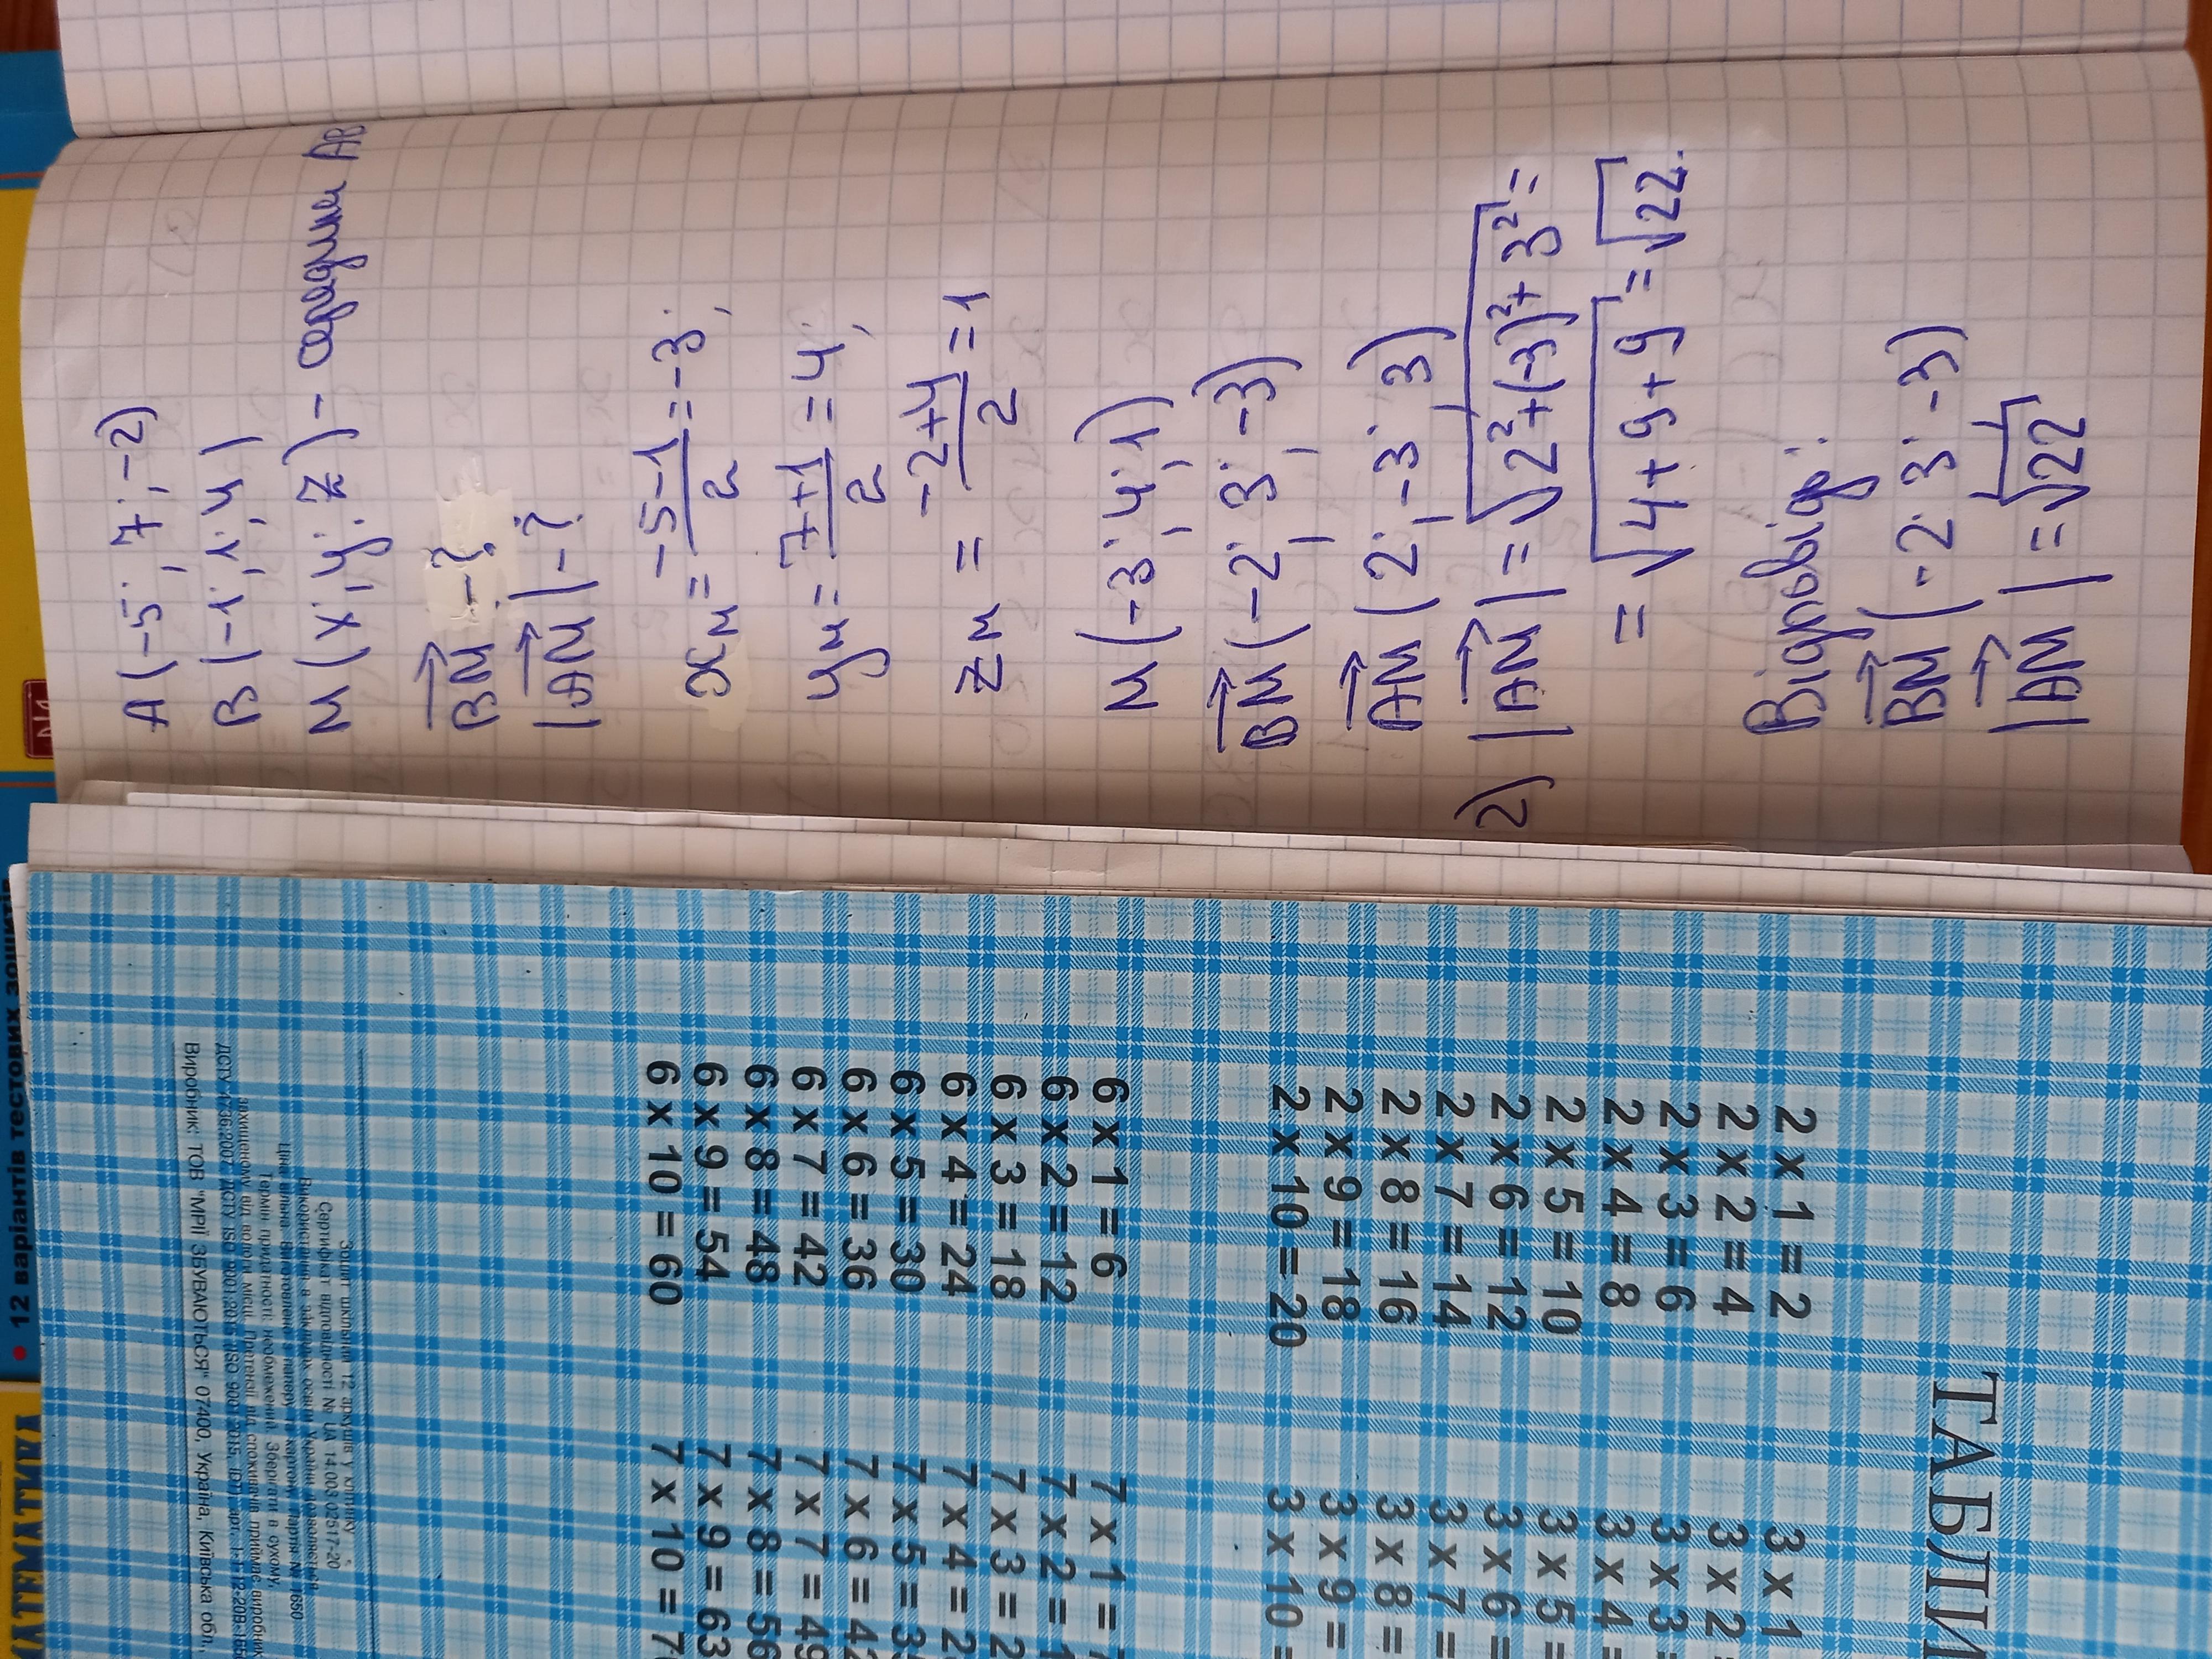 A(-5; 7; -2)
B(-1; 1; 4)
M(x; y; z) - середина AB
BM - ?
|AM| - ?
xм = -5-1/2 = -3;
yм = 7+1/2 = 4;
zм = -2+4/2 = 1
M(-3; 4; 1)
BM(-2; 3; -3)
AM(2; -3; 3)
2) |AM| = √2²+(-3)²+3² =
= √4+9+9 = √22.
Відповідь:
BM(-2; 3; -3)
|AM| = √22
ТАБЛИ
2 x 1 = 2
2 x 2 = 4
2 x 3 = 6
2 x 4 = 8
2 x 5 = 10
2 x 6 = 12
2 x 7 = 14
2 x 8 = 16
2 x 9 = 18
2 x 10 = 20
3 x 1
3 x 2
3 x 3
3 x 4 =
3 x 5 =
3 x 6 =
3 x 7 =
3 x 8 =
3 x 9 =
3 x 10 =
6 x 1 = 6
6 x 2 = 12
6 x 3 = 18
6 x 4 = 24
6 x 5 = 30
6 x 6 = 36
6 x 7 = 42
6 x 8 = 48
6 x 9 = 54
6 x 10 = 60
7 x 1 = 7
7 x 2 = 1
7 x 3 = 2
7 x 4 = 2
7 x 5 = 3
7 x 6 = 42
7 x 7 = 49
7 x 8 = 56
7 x 9 = 63
7 x 10 = 7
Зошит шкільний 12 аркушів у клітинку
Сертифікат відповідності № UA 14.003.02517-20
Використання в закладах освіти України дозволяється
Ціна вільна. Виготовлено з паперу та картону. Партія № 1650
Термін придатності: необмежений. Зберігати в сухому,
захищеному від вологи місці. Претензії від споживачів приймає виробник
Виробник: ТОВ "МРІЇ ЗБУВАЮТЬСЯ" 07400, Україна, Київська обл.,
• 12 варіантів тестових зошитів
МАТЕМАТИКА